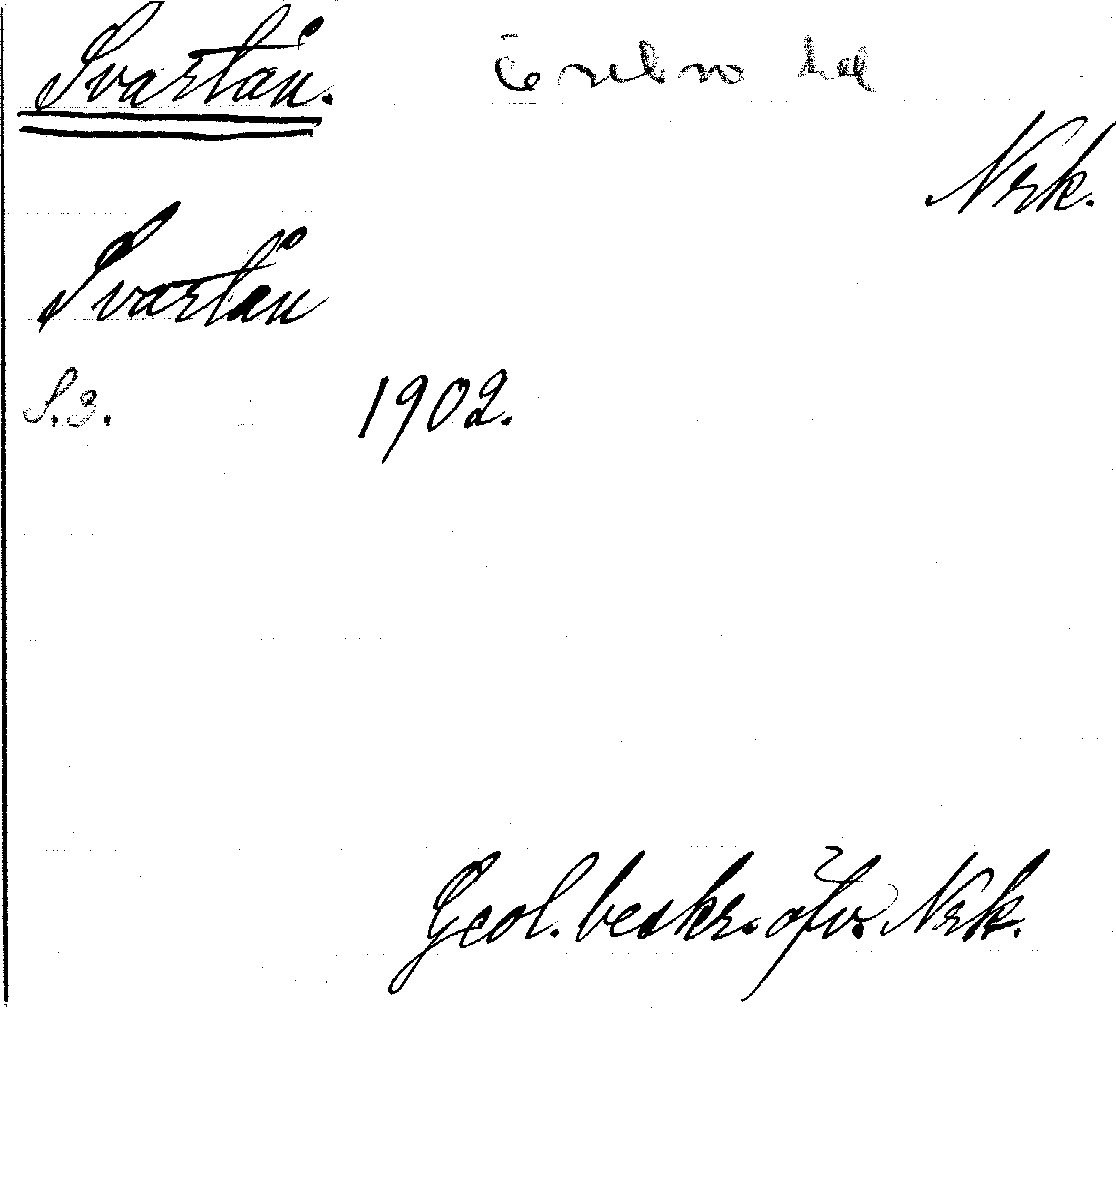 Svartån. Örebro hd
Nrk.
Svartån
S. 3. 1902.
Geol. beskr. öfv. Nrk.